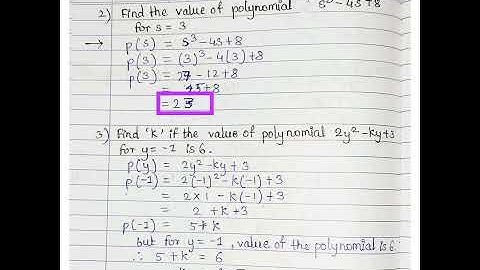 2) Find the value of polynomial s³-4s+8
for s = 3
→ p(s) = s³-4s+8
p(3) = (3)³-4(3)+8
p(3) = 27-12+8
= 15+8
= 23
3) Find 'k' if the value of polynomial 2y²-ky+3
for y=-1 is 6.
p(y) = 2y²-ky+3
p(-1) = 2(-1)²-k(-1)+3
= 2×1-k(-1)+3
= 2+k+3
p(-1) = 5+k
but for y=-1, value of the polynomial is 6.
∴ 5+k = 6